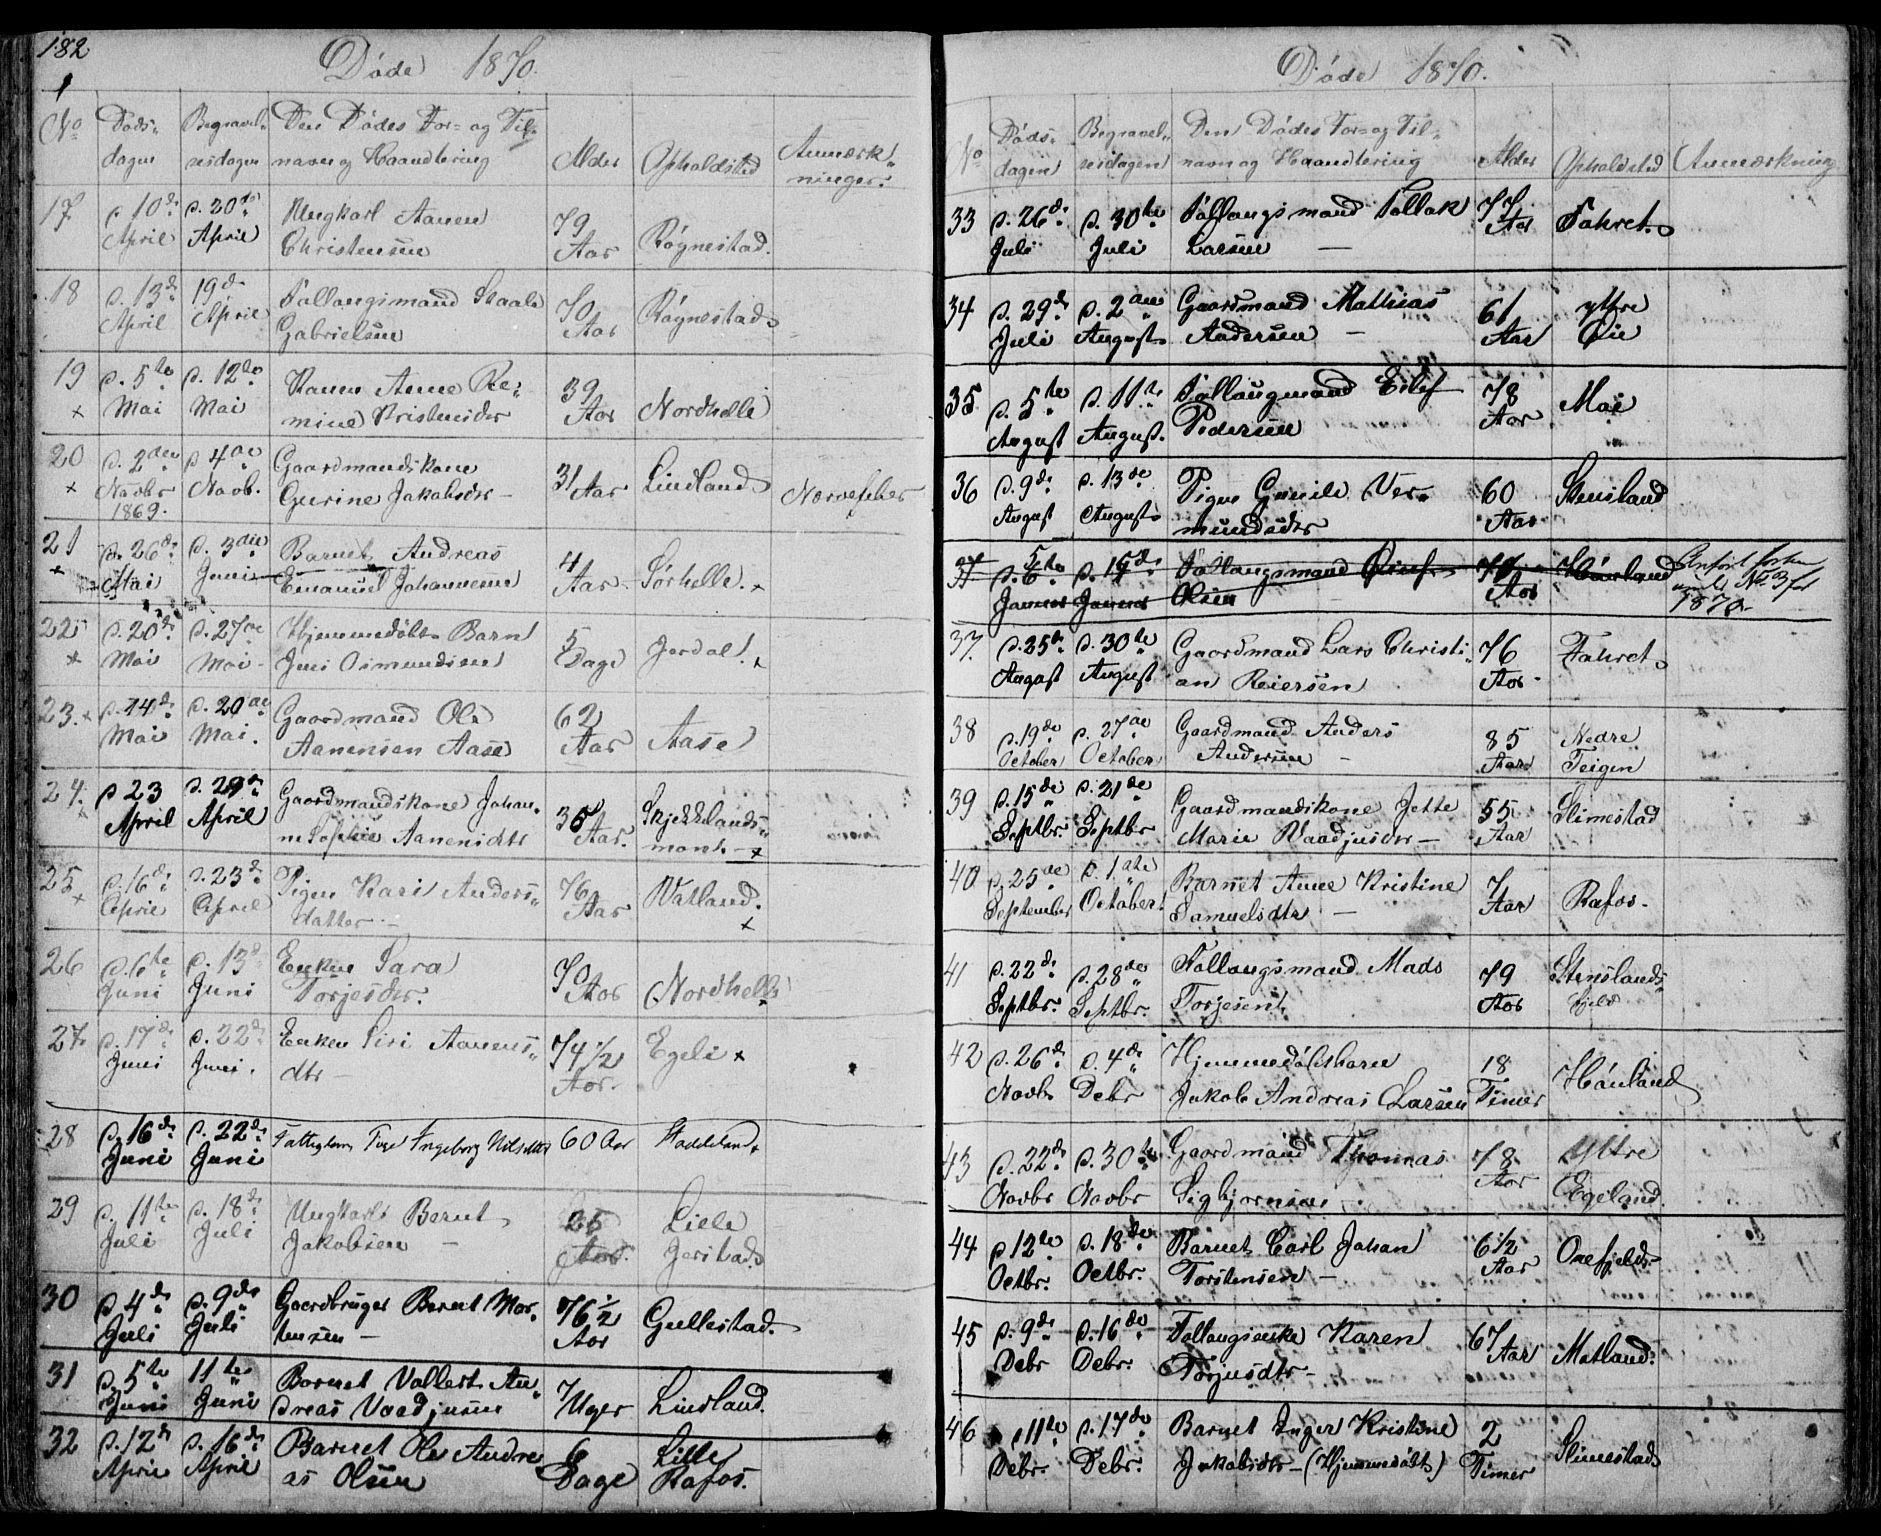 182
Døde 1870.
No
Døds-
dagen
Begravel-
sesdagen
Den Dødes For- og Til-
navn og Haandtering
Alder
Opholdsted
Anmærk-
ninger.
17
d. 10de
April
d. 20de
April
Ungkarl Aanen
Christensen
79
Aar
Røgnestad.
18
d. 13de
April
19de
April
Follaugsmand Staale
Gabrielsen
70
Aar
Røgnestad
19
×
d. 5te
Mai
d. 12te
Mai
Konen Anne Re-
mine Kristensdtr
39
Aar
Nordhelle
20
×
d. 2den
Novbr
1869.
d 4de
Novb.
Gaardmandskone
Gurine Jakobsdtr –
31 Aar
Lindland
Nervefeber
21
×
d. 26de
Mai
d. 3die
Juni
Barnet Andreas
Emanuel Johannesen
4
Aar
Sørhelle. ×
22
×
d. 20de
Mai
d. 27de
Mai
Hjemmedøbt Barn
Jens Osmundsen
5
Dage
Jerdal. ×
23. ×
d. 14de
Mai
d. 20de
Mai.
Gaardmand Ole
Aanensen Aase
62
Aar
Aase
24.
×
d 23
April
d. 29de
April
Gaardmandskone Johan-
ne Sophie Aanensdtr
36
Aar.
Skjekkelands-
moni. – ×
25
×
d. 16de
April
d. 23de
April
Pigen Kari Anders-
datter –
76
Aar
Watland.
×
26
d. 6te
Juni
d. 13de
Juni
Enken Sara
Torjesdtr.
70
Aar
Nordhelle
27
d. 17de
Juni
d. 22de
Juni.
Enken Siri Aanens-
dtr –
74 1/2
Aar.
Egeli ×
28
d. 16de
Juni
d. 22de
Juni
Fattiglem Pige Ingeborg Nilsdatter
60 Aar
Haddeland
29
d. 11te
Juli
d. 18de
Juli
Ungkarl Bernt
Jakobsen –
25
Aar.
Lille
Jerstad
30
d. 4de
Juli
d. 9de
Juli
Gaardbruger Bernt Mor-
tensen –
76 1/2
Aar
Gullestad.
31
d. 5te
Juni
11te
Juni
Barnet Vallert An-
dreas Vaadjusen
7
Uger
Lindland.
32
d. 12de
April
d. 16de
April
Barnet Ole Andre-
as Olsen
6
Dage
Lille
Rafos.
Døde 1870.
No
Døds-
dagen
Begravel-
sesdagen
Den Dødes For- og Til-
navn og Haandtering
Alder
Opholdsted
Anmærkning
33
d. 26de
Juli
d. 30te
Juli
Follaugsmand Tollak
Larsen –
77
Aar
Fahret.
34
d. 29de
Juli
d. 2den
August
Gaardmand Mathias
Andersen –
61
Aar
Ytre
Øie
35
d. 5te
August
d. 11te
August.
Follaugmand Eilef
Pedersen
78
Aar
Moi
36
d. 9de
August
d. 13de
August
Pigen Gunild Ver-
mundsdtr
60
Aar
Stensland
37
Januar
Januar
Follaugsmand
Olsen
Aar
Hånland
Anført foran
No 3 for
1870.
37.
d. 25de
August
d. 30te
August
Gaardmand Lars Christi-
an Reiersen
76
Aar
Fahret
38
d. 19de
October
d. 27de
October
Gaardmand Anders
Andersen –
85
Aar
Nedre
Teigen
39
d. 15de
Septbr.
d. 21de
Septbr
Gaardmandskone Jette
Marie Vaadjusdtr –
55
Aar
Slimestad
40
d. 25de
September
d. 1ste
October.
Barnet Anne Kristine
Samuelsdtr –
7
Aar
Rafos.
41
d. 22de
Septbr.
d. 28de
Septbr.
Follaugsmand Mads
Torjesen
79
Aar
Stenslands-
fjeld
42
d. 26de
Novb.
d. 4de
Debr
Hjemmedøbt barn
Jakob Andreas Larsen
18
Timer
Hånland
43
d. 22de
Novbr
d. 30te
Novbr
Gaardmand Thomas
Sigbjørnsen
78
Aar
Ytre
Egeland
44
d 12te
Octbr.
d. 18de
Octbr.
Barnet Carl Johan
Torstensen –
6 1/2
Aar
Orefjeld
45
d. 9de
Debr
d. 16de
Debr.
Follaugsenke Karen
Torjusdtr –
67
Aar
Motland.
46
d 11te
Debr.
d. 17de
Debr.
Barnet Inger Kristine
Jakobsdtr – (Hjemmedøbt)
2
Timer
Slimestad